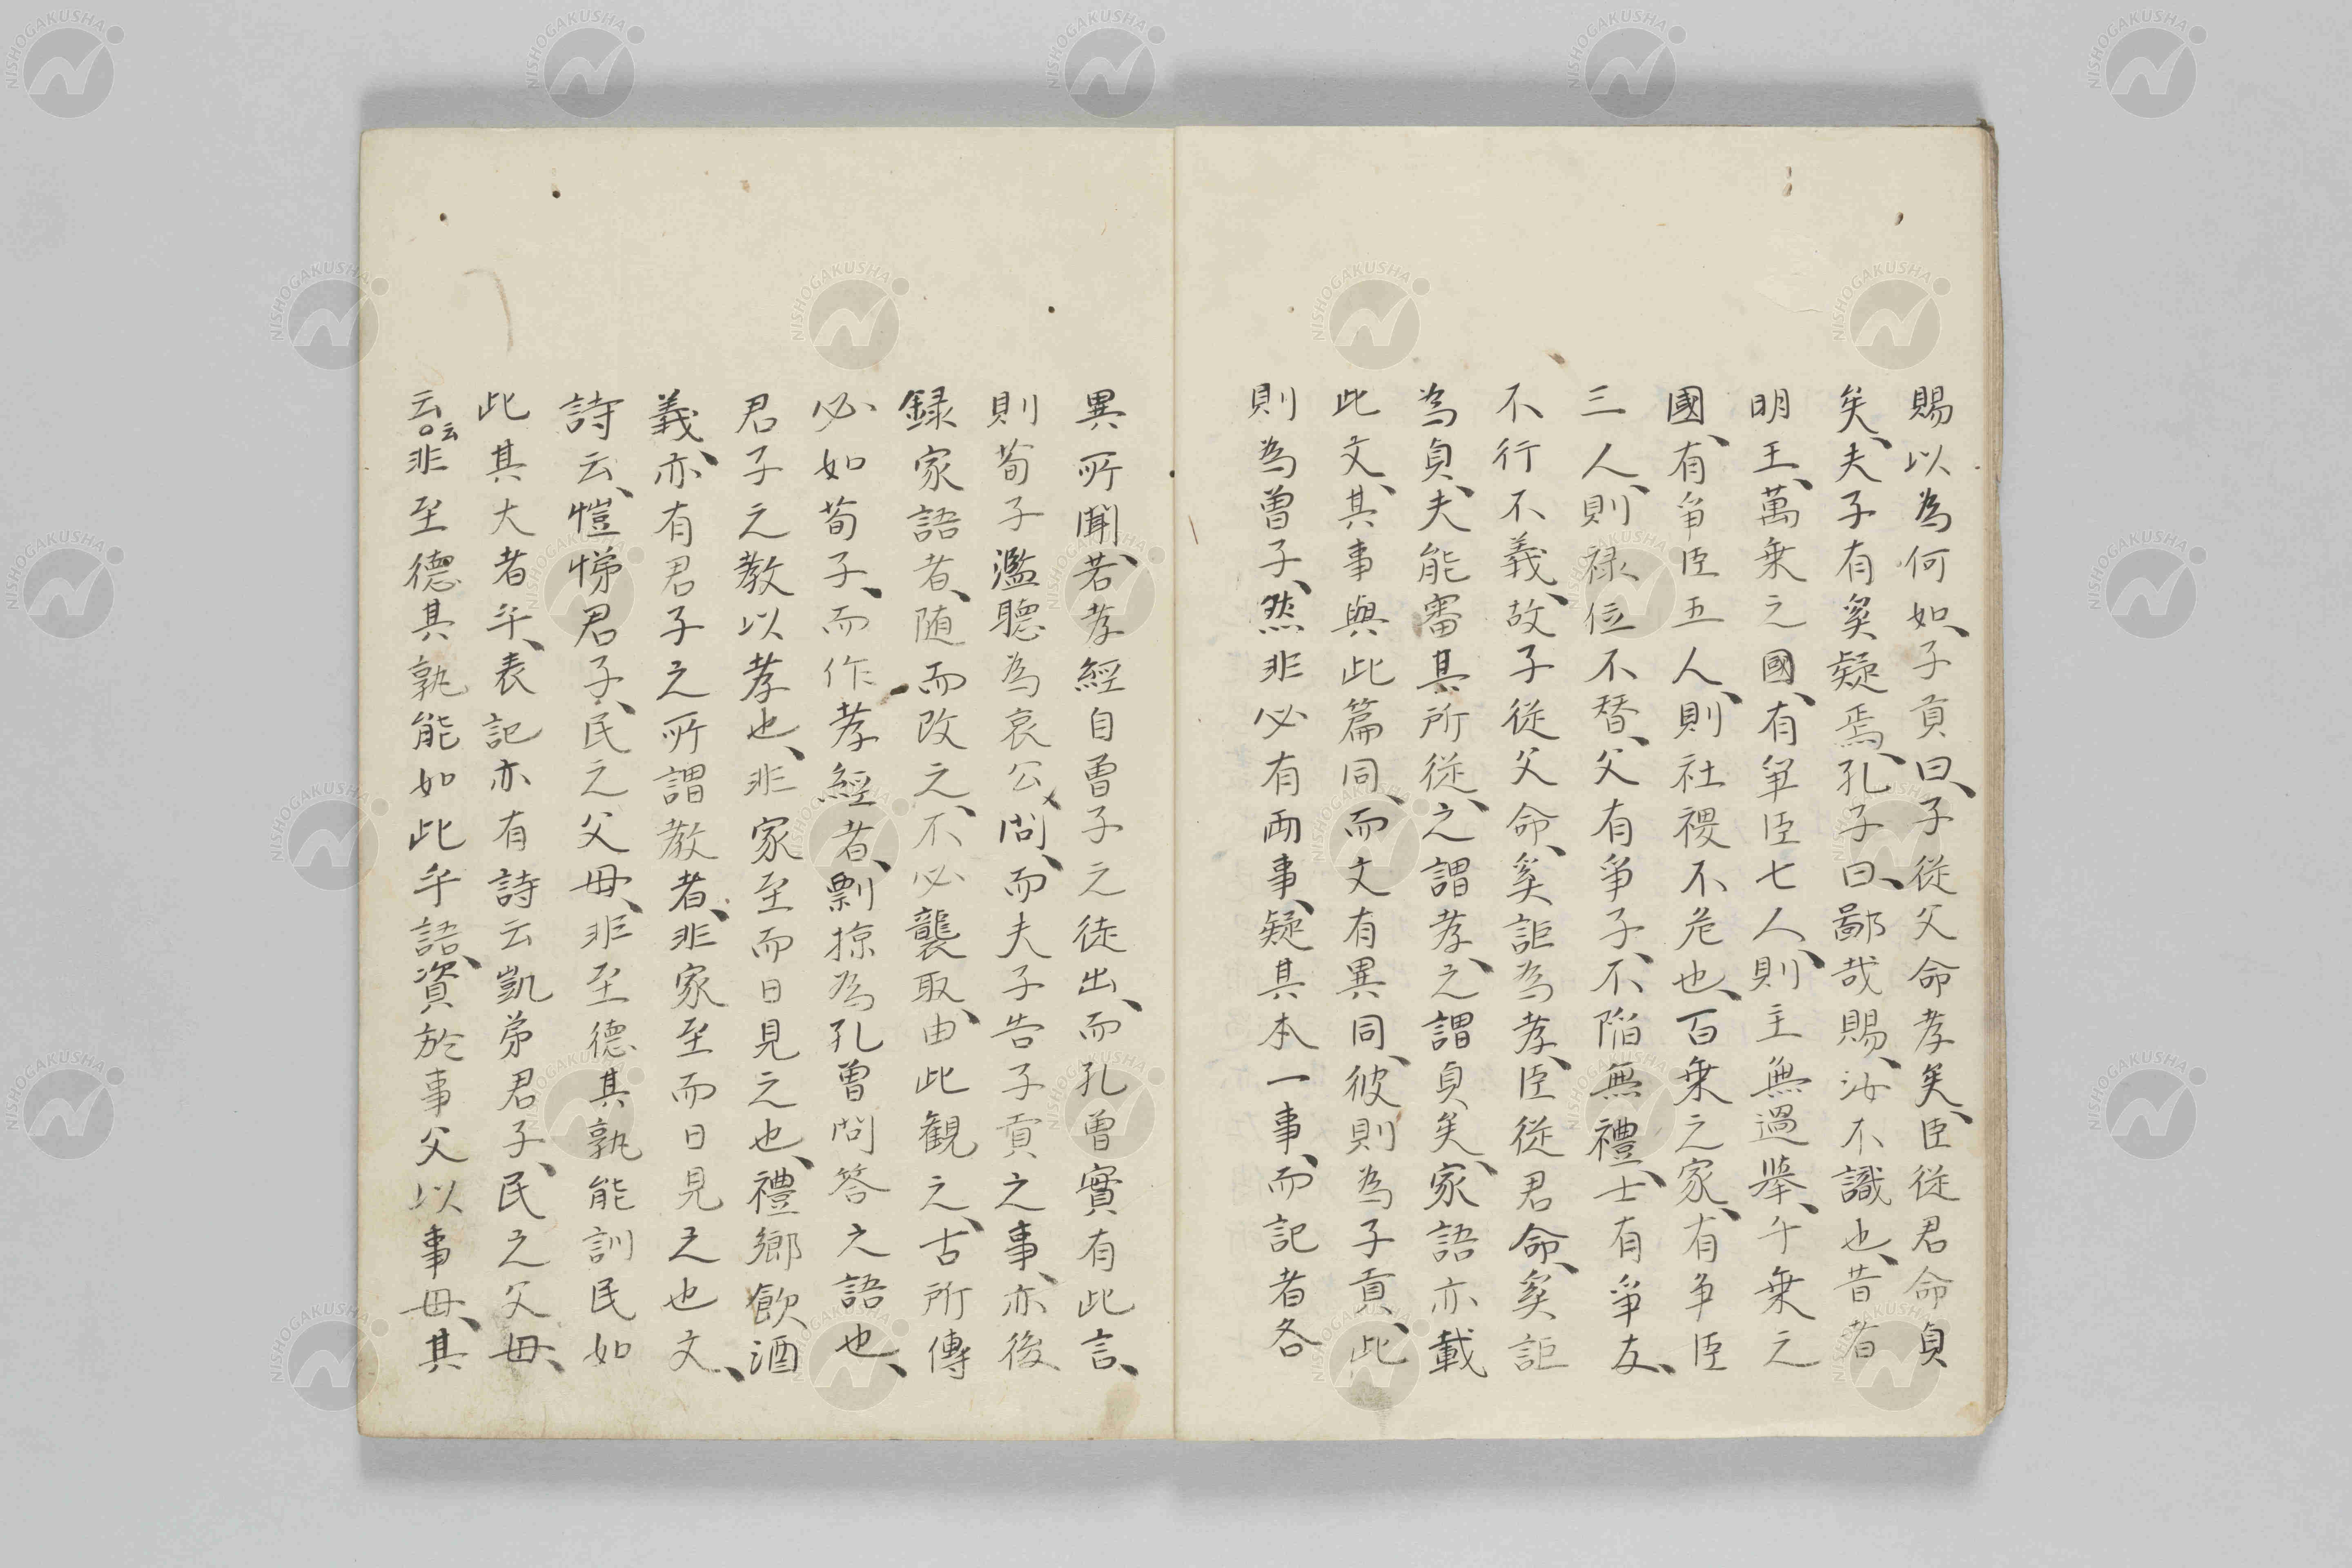 賜以為何如、子貢曰、子從父命孝矣、臣從君命貞
矣、夫子有奚疑焉、孔子曰、鄙哉賜、汝不識也、昔者
明王、萬乗之國、有爭臣七人、則主無過擧、千乗之
國、有爭臣五人、則社稷不危也、百乗之家、有争臣
三人、則禄位不替、父有爭子、不陥無禮、士有爭友、
不行不義、故子從父命、奚詎為孝、臣從君命、奚詎
為貞、夫能審其所從、之謂孝、之謂貞矣、家語亦載
此文、其事與此篇同、而文有異同、彼則為子貢、此
則為曽子、然非必有兩事、疑其本一事、而記者各
異所聞、若孝經自曽子之徒出、而孔曽實有此言、
則荀子濫聴為哀公問、而夫子告子貢之事、亦後
録家語者、随而改之、不必襲取、由此観之、古所傳
必如荀子、而作孝經者、剽掠為孔曽問答之語也、
君子之教以孝也、非家至而日見之也、禮鄉飲酒
義、亦有君子之所謂教者、非家至而日見之也文、
詩云、愷悌君子、民之父母、非至德其孰能訓民如
此其大者乎、表記亦有詩云凱弟君子、民之父母、
云云。非至德其孰能如此乎語、資於事父以事母、其
NISHOGAKUSHA